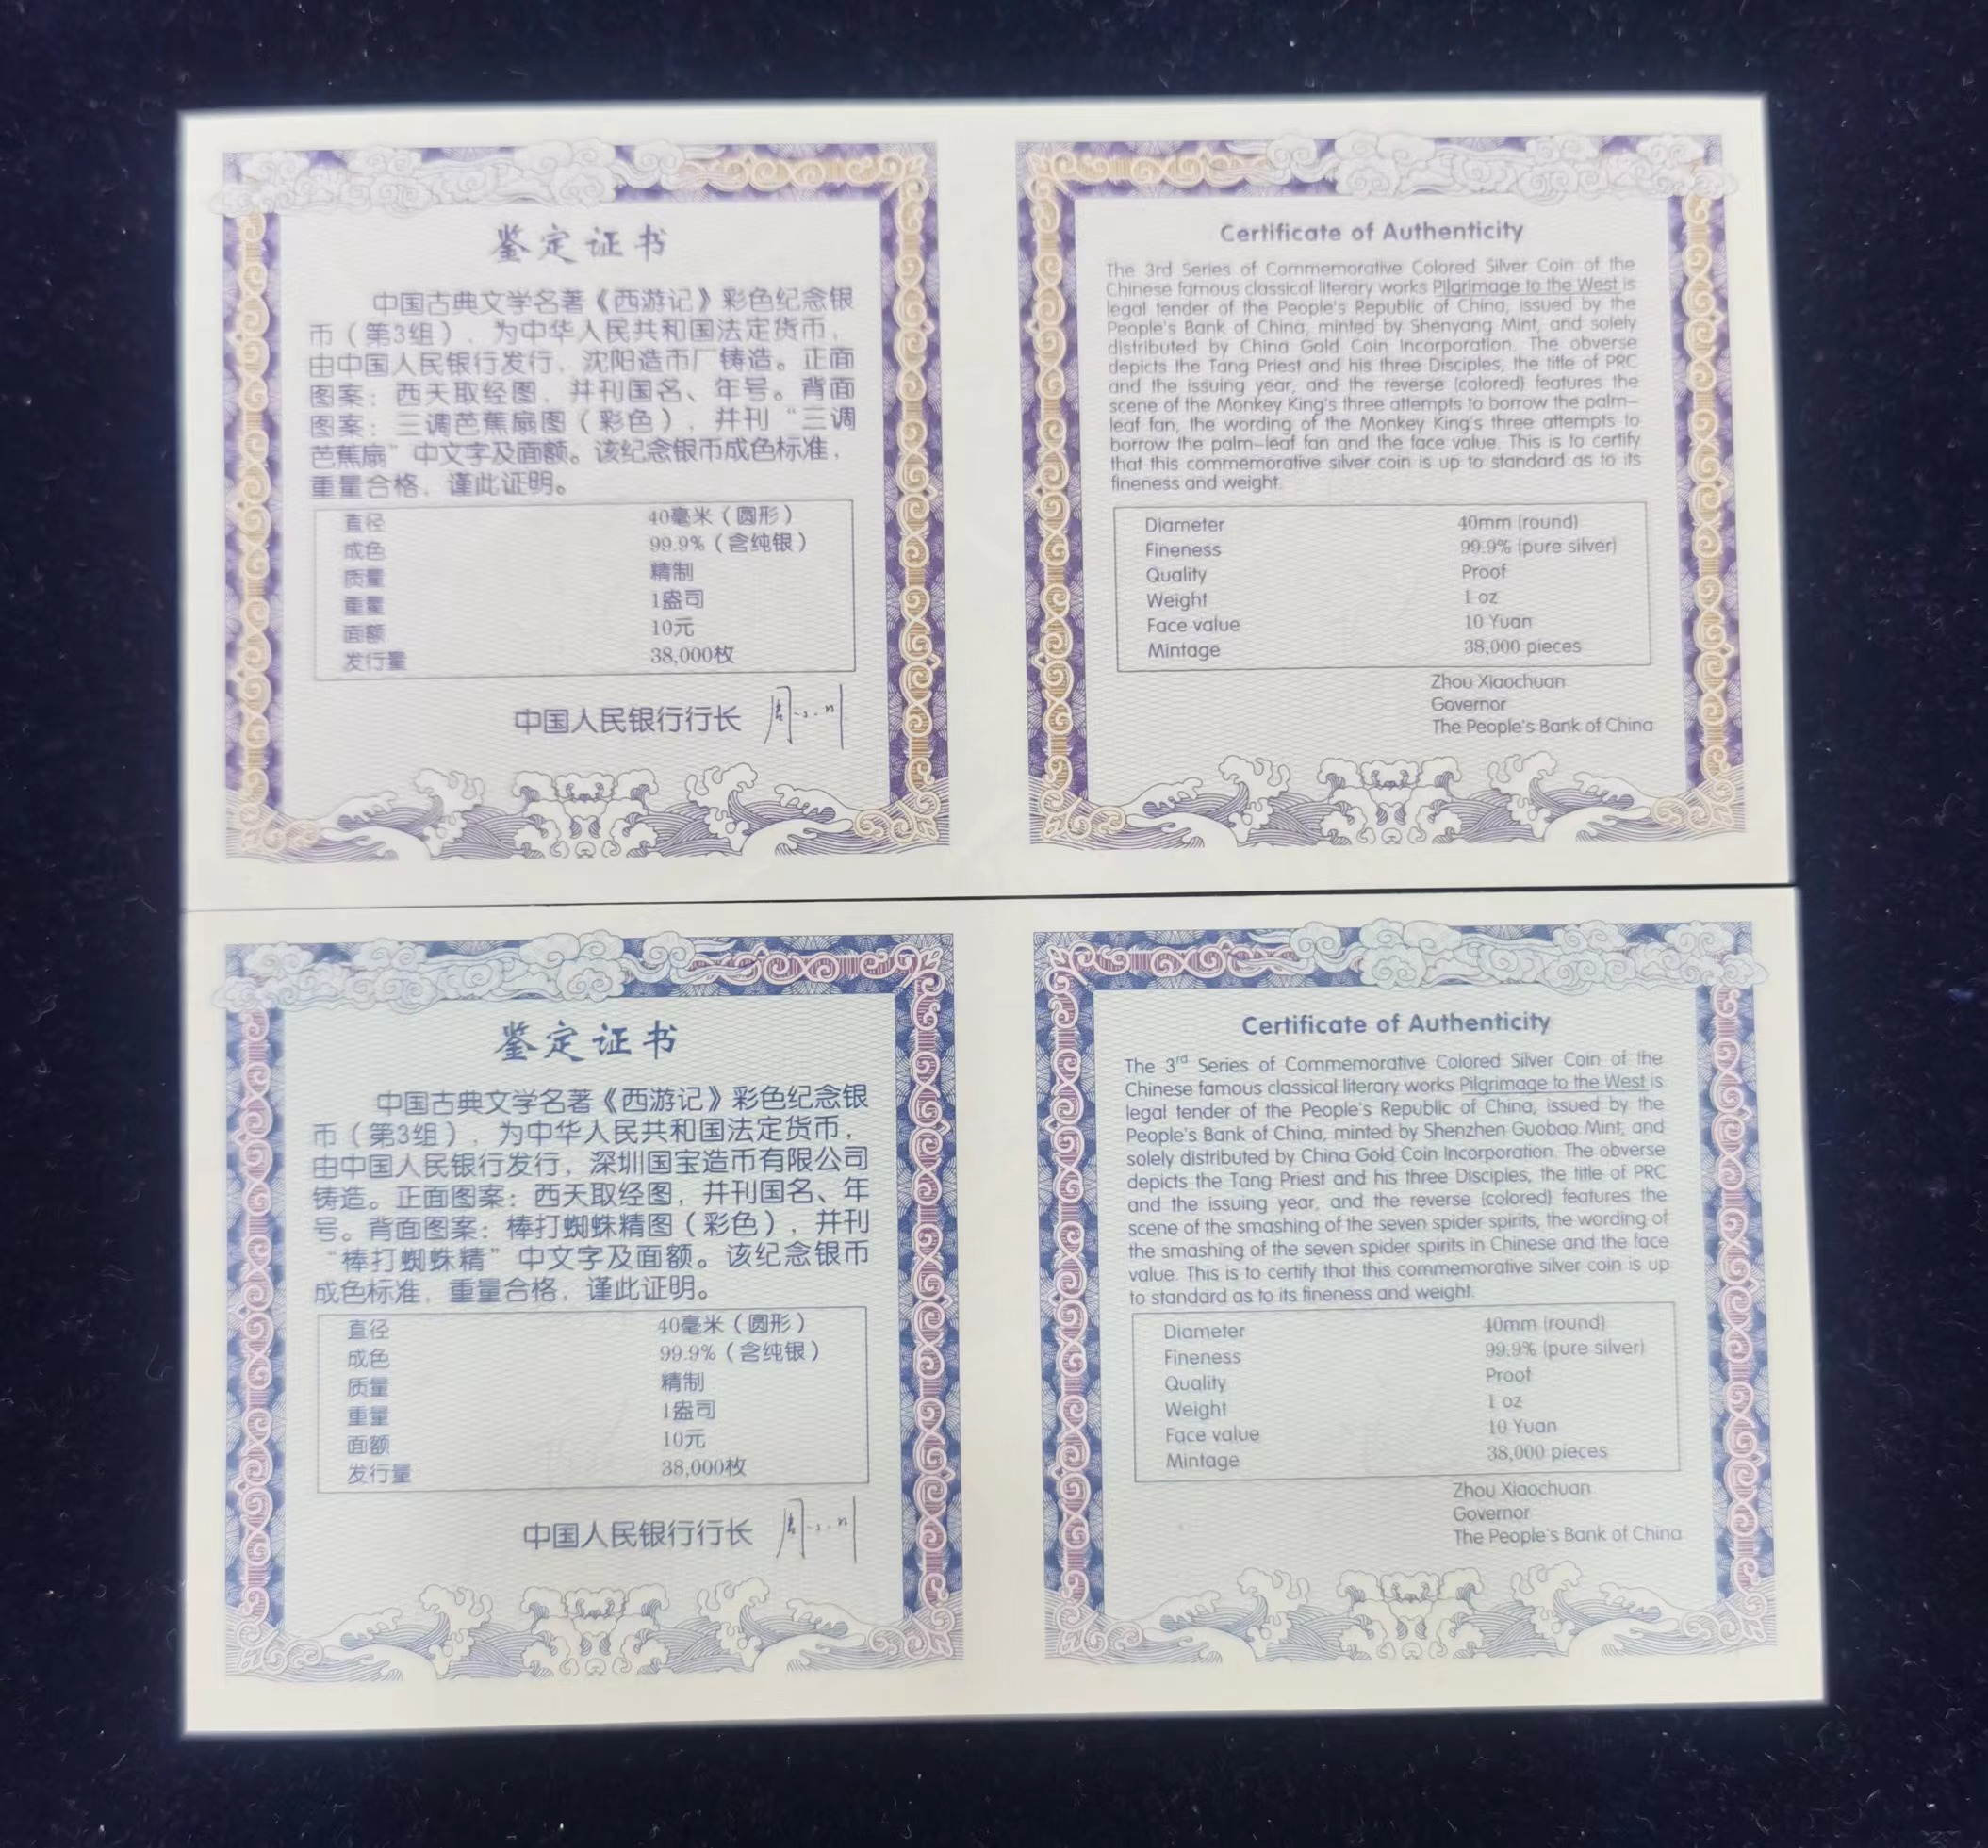 鉴定证书
中国古典文学名著《西游记》彩色纪念银
币（第3组），为中华人民共和国法定货币，
由中国人民银行发行，沈阳造币厂铸造。正面
图案：西天取经图，并刊国名、年号。背面
图案：三调芭蕉扇图（彩色），并刊“三调
芭蕉扇”中文字及面额。该纪念银币成色标准，
重量合格，谨此证明。
直径 40毫米（圆形）
成色 99.9%（含纯银）
质量 精制
重量 1盎司
面额 10元
发行量 38,000枚
中国人民银行行长 周小川
Certificate of Authenticity
The 3rd Series of Commemorative Colored Silver Coin of the
Chinese famous classical literary works Pilgrimage to the West is
legal tender of the People's Republic of China, issued by the
People's Bank of China, minted by Shenyang Mint, and solely
distributed by China Gold Coin Incorporation. The obverse
depicts the Tang Priest and his three Disciples, the title of PRC
and the issuing year, and the reverse (colored) features the
scene of the Monkey King's three attempts to borrow the palm-
leaf fan, the wording of the Monkey King's three attempts to
borrow the palm-leaf fan and the face value. This is to certify
that this commemorative silver coin is up to standard as to its
fineness and weight.
Diameter 40mm (round)
Fineness 99.9% (pure silver)
Quality Proof
Weight 1 oz
Face value 10 Yuan
Mintage 38,000 pieces
Zhou Xiaochuan
Governor
The People's Bank of China
鉴定证书
中国古典文学名著《西游记》彩色纪念银
币（第3组），为中华人民共和国法定货币，
由中国人民银行发行，深圳国宝造币有限公司
铸造。正面图案：西天取经图，并刊国名、年
号。背面图案：棒打蜘蛛精图（彩色），并刊
“棒打蜘蛛精”中文字及面额。该纪念银币
成色标准，重量合格，谨此证明。
直径 40毫米（圆形）
成色 99.9%（含纯银）
质量 精制
重量 1盎司
面额 10元
发行量 38,000枚
中国人民银行行长 周小川
Certificate of Authenticity
The 3rd Series of Commemorative Colored Silver Coin of the
Chinese famous classical literary works Pilgrimage to the West is
legal tender of the People's Republic of China, issued by the
People's Bank of China, minted by Shenzhen Guobao Mint, and
solely distributed by China Gold Coin Incorporation. The obverse
depicts the Tang Priest and his three Disciples, the title of PRC
and the issuing year, and the reverse (colored) features the
scene of the smashing of the seven spider spirits, the wording of
the smashing of the seven spider spirits in Chinese and the face
value. This is to certify that this commemorative silver coin is up
to standard as to its fineness and weight.
Diameter 40mm (round)
Fineness 99.9% (pure silver)
Quality Proof
Weight 1 oz
Face value 10 Yuan
Mintage 38,000 pieces
Zhou Xiaochuan
Governor
The People's Bank of China